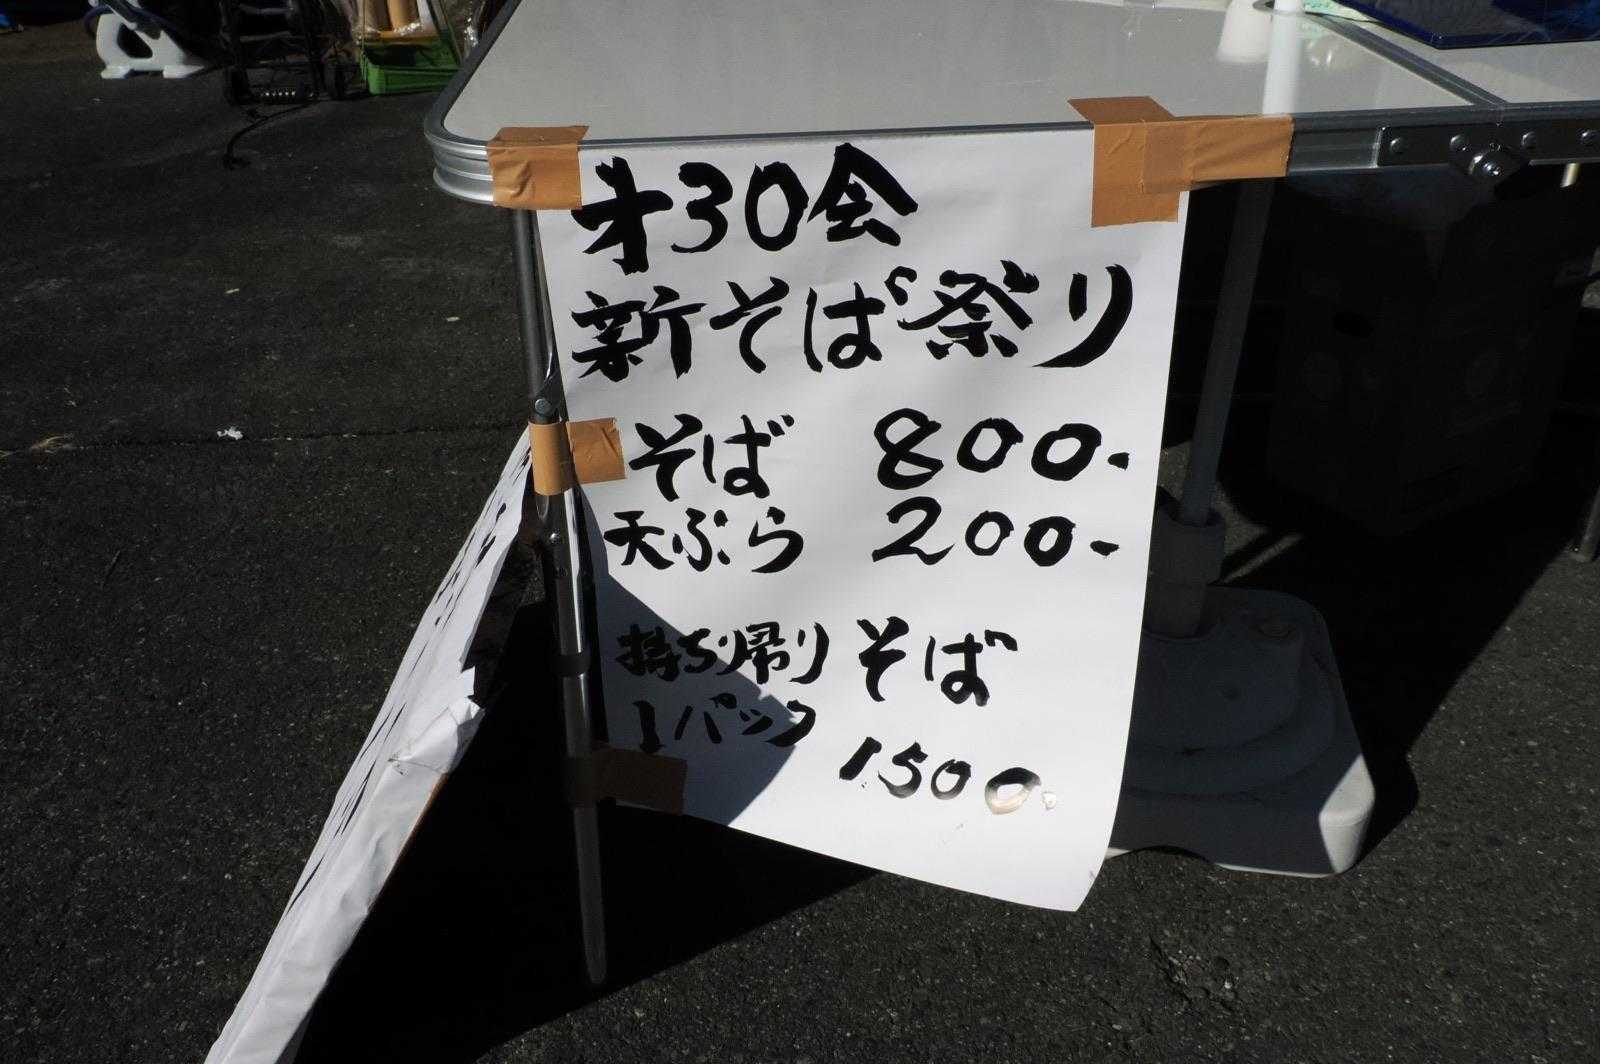 才30会
新そば祭り
そば 800-
天ぷら 200-
持ち帰り そば
1パック 1500-